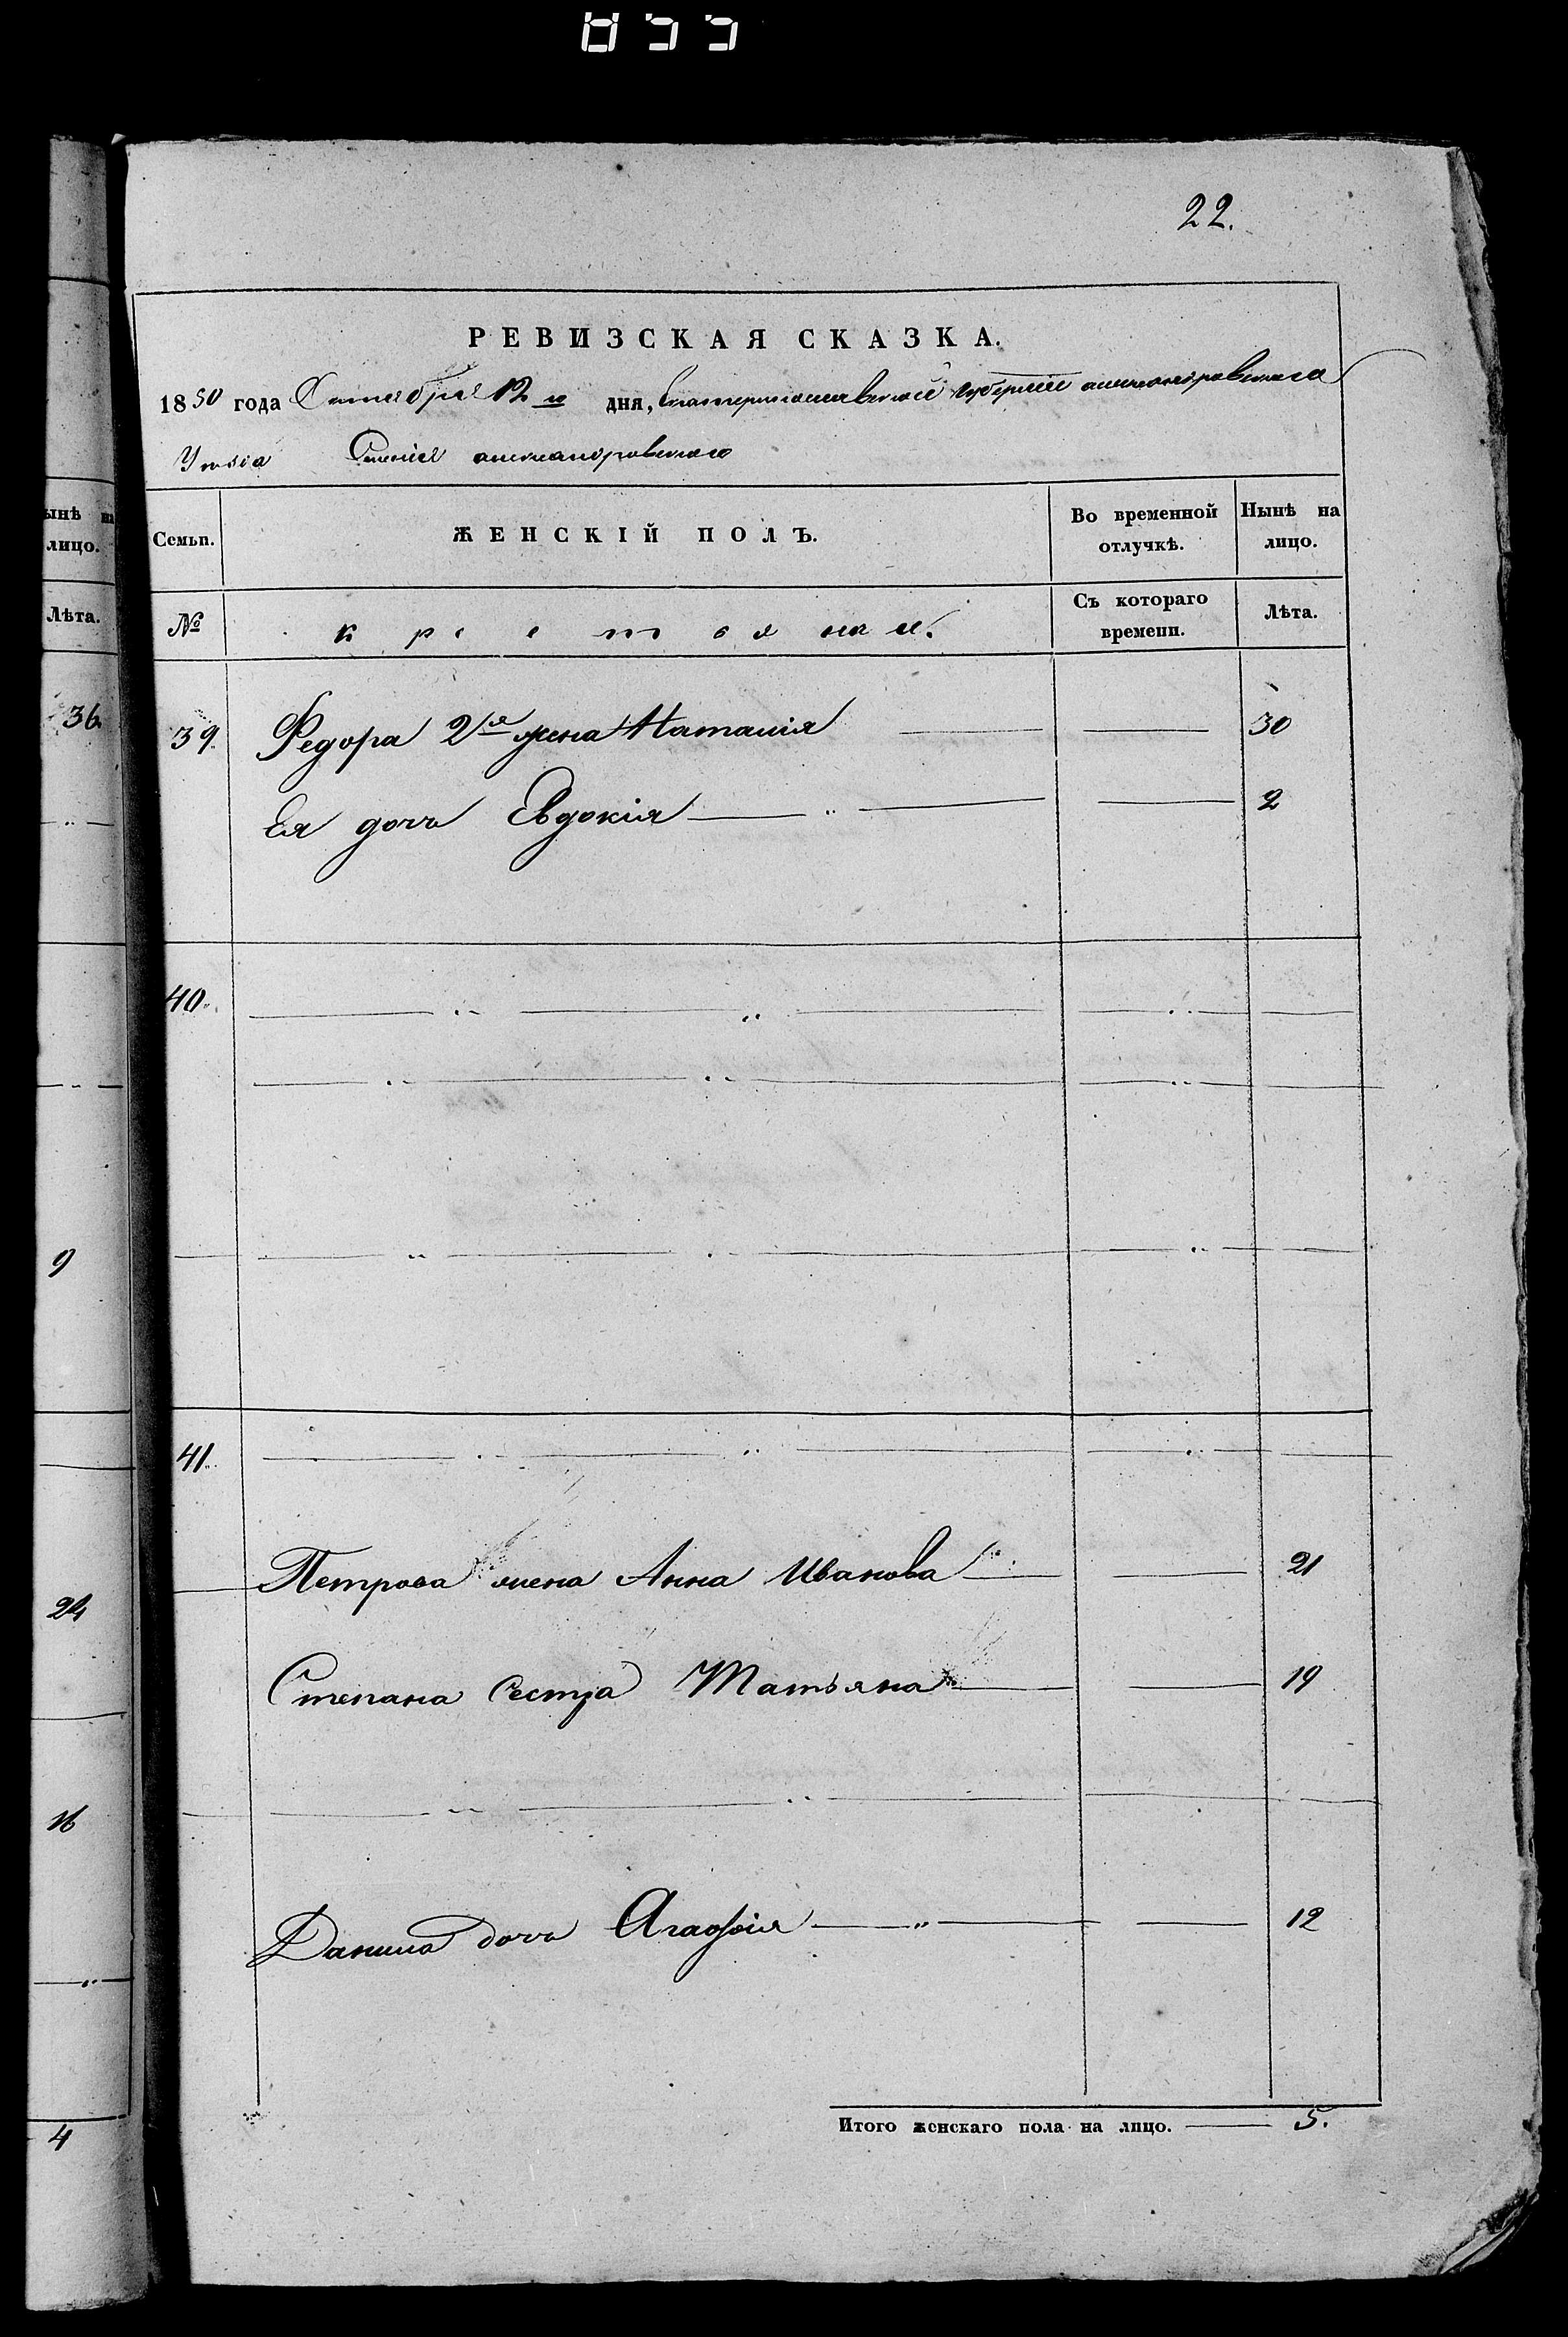 855
22.
РЕВИЗСКАЯ СКАЗКА.
1850 года Октября 12 го дня, Екатеринославской Губернии александровского
Уезда Селения александровского
Семьи. ЖЕНСКІЙ ПОЛЪ. Во временной отлучкѣ. Нынѣ на лицо.
№ крестьяне. Съ котораго времени. Лѣта.
39. Федора 2я жена Наталия 30
Ея дочь Евдокия 2
40.
41.
Петрова жена Анна Иванова 21
Степана Сестра Татьяна 19
Данила дочь Агафия 12
Итого женскаго пола на лицо. 5.
ынѣ на
лицо.
Лѣта.
36
9
24
16
4